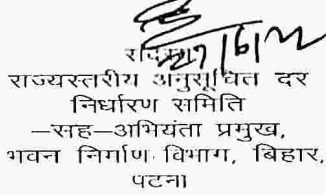 राज्यस्तरीय अनुसूचित दर
निर्धारण समिति
–सह–अभियंता प्रमुख,
भवन निर्माण विभाग, बिहार,
पटना